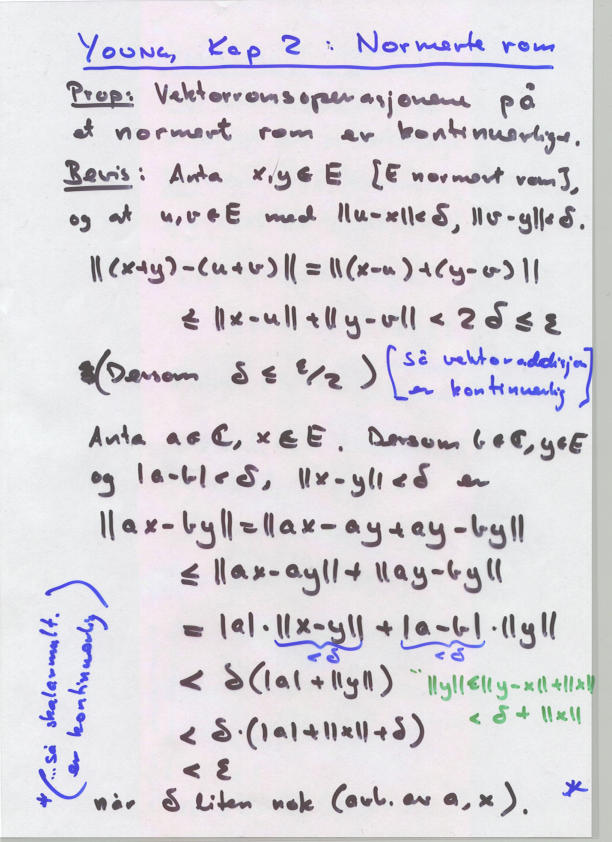 Young, Kap 2 : Normerte rom
Prop: Vektorromsoperasjonene på
et normert rom er kontinuerlige.
Bevis: Anta x,y ∈ E [E normert rom],
og at u,v ∈ E med ||u-x||<δ, ||v-y||<δ.
||(x+y)-(u+v)|| = ||(x-u)+(y-v)||
≤ ||x-u|| + ||y-v|| < 2δ ≤ ε
(Dersom δ ≤ ε/2) [så vektoraddisjon
er kontinuerlig]
Anta a ∈ ℂ, x ∈ E. Dersom b ∈ ℂ, y ∈ E
og |a-b| < δ, ||x-y|| < δ er
||ax-by|| = ||ax-ay+ay-by||
≤ ||ax-ay|| + ||ay-by||
= |a|·||x-y|| + |a-b|·||y||
<δ <δ
< δ(|a|+||y||) ||y|| ≤ ||y-x||+||x||
< δ + ||x||
< δ·(|a|+||x||+δ)
< ε
når δ liten nok (avh. av a, x). *
*(...så skalarmult.
er kontinuerlig)